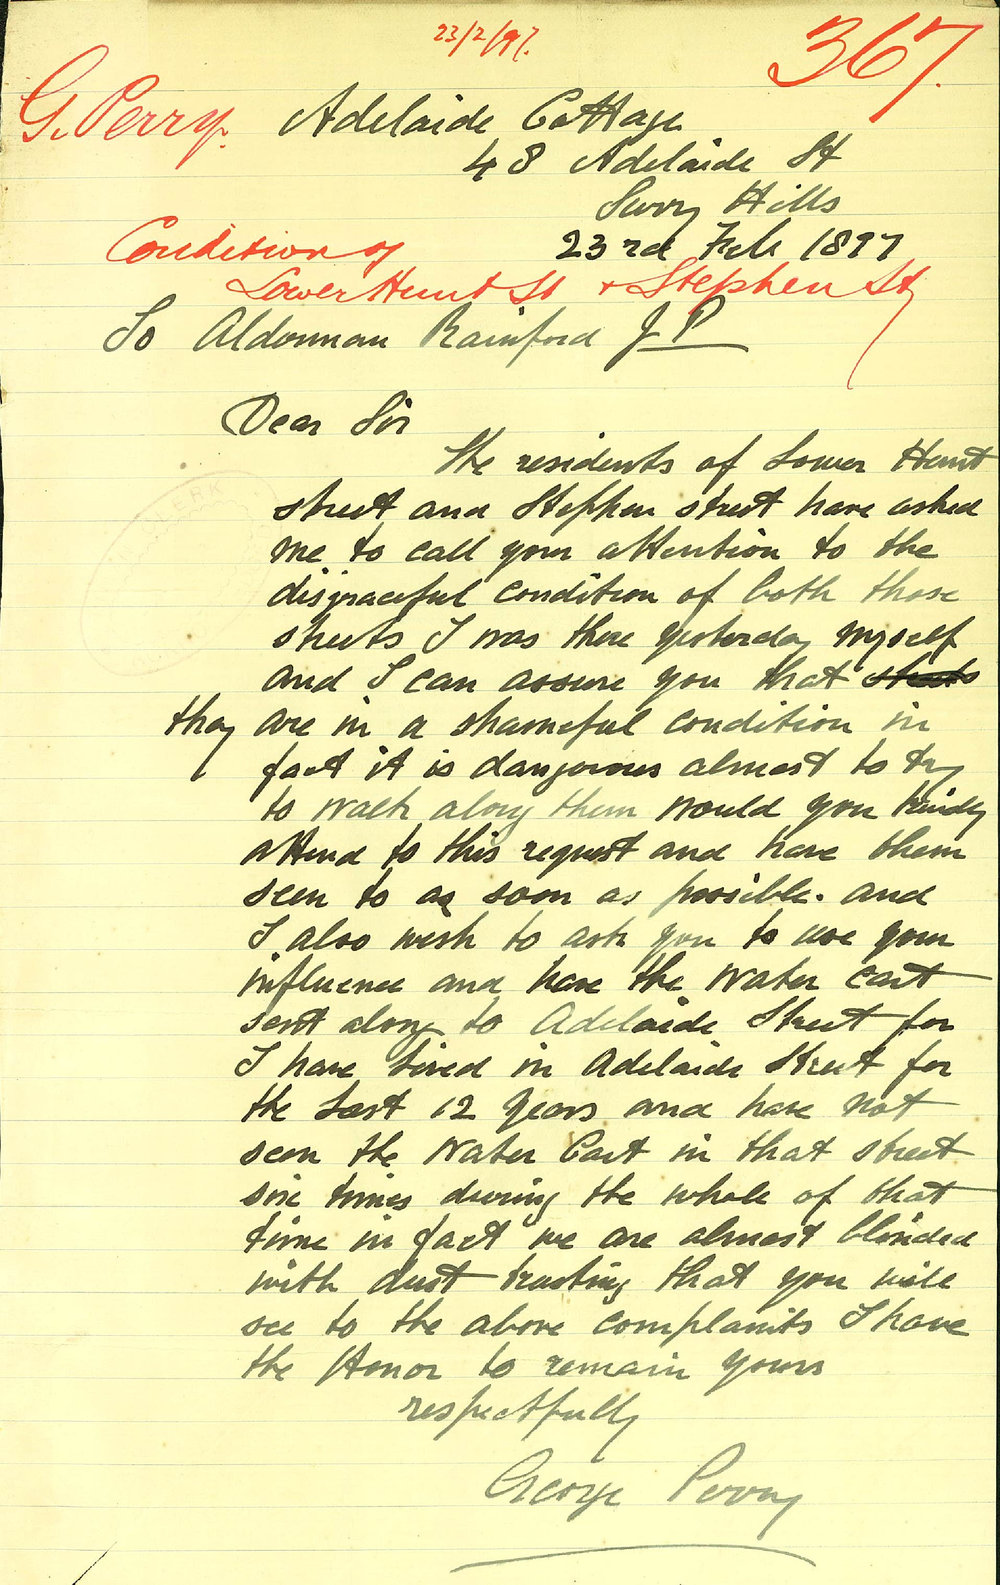 23/2/97.
367.
G. Perry.
Adelaide Cottage
48 Adelaide St
Surry Hills
23rd Feb 1897
Condition of
Lower Hunt St & Stephen St
To Alderman Rainford JP
Dear Sir
The residents of Lower Hunt
street and Stephen street have asked
me to call your attention to the
disgraceful condition of both those
streets I was there yesterday myself
and I can assure you that streets
they are in a shameful condition in
fact it is dangerous almost to try
to walk along them would you kindly
attend to this request and have them
seen to as soon as possible. and
I also wish to ask you to use your
influence and have the Water Cart
sent along to Adelaide Street for
I have lived in Adelaide Street for
the Last 12 years and have not
seen the Water Cart in that street
six times during the whole of that
time in fact we are almost blinded
with dust trusting that you will
see to the above complaints I have
the Honor to remain yours
respectfully
George Perry
ERK